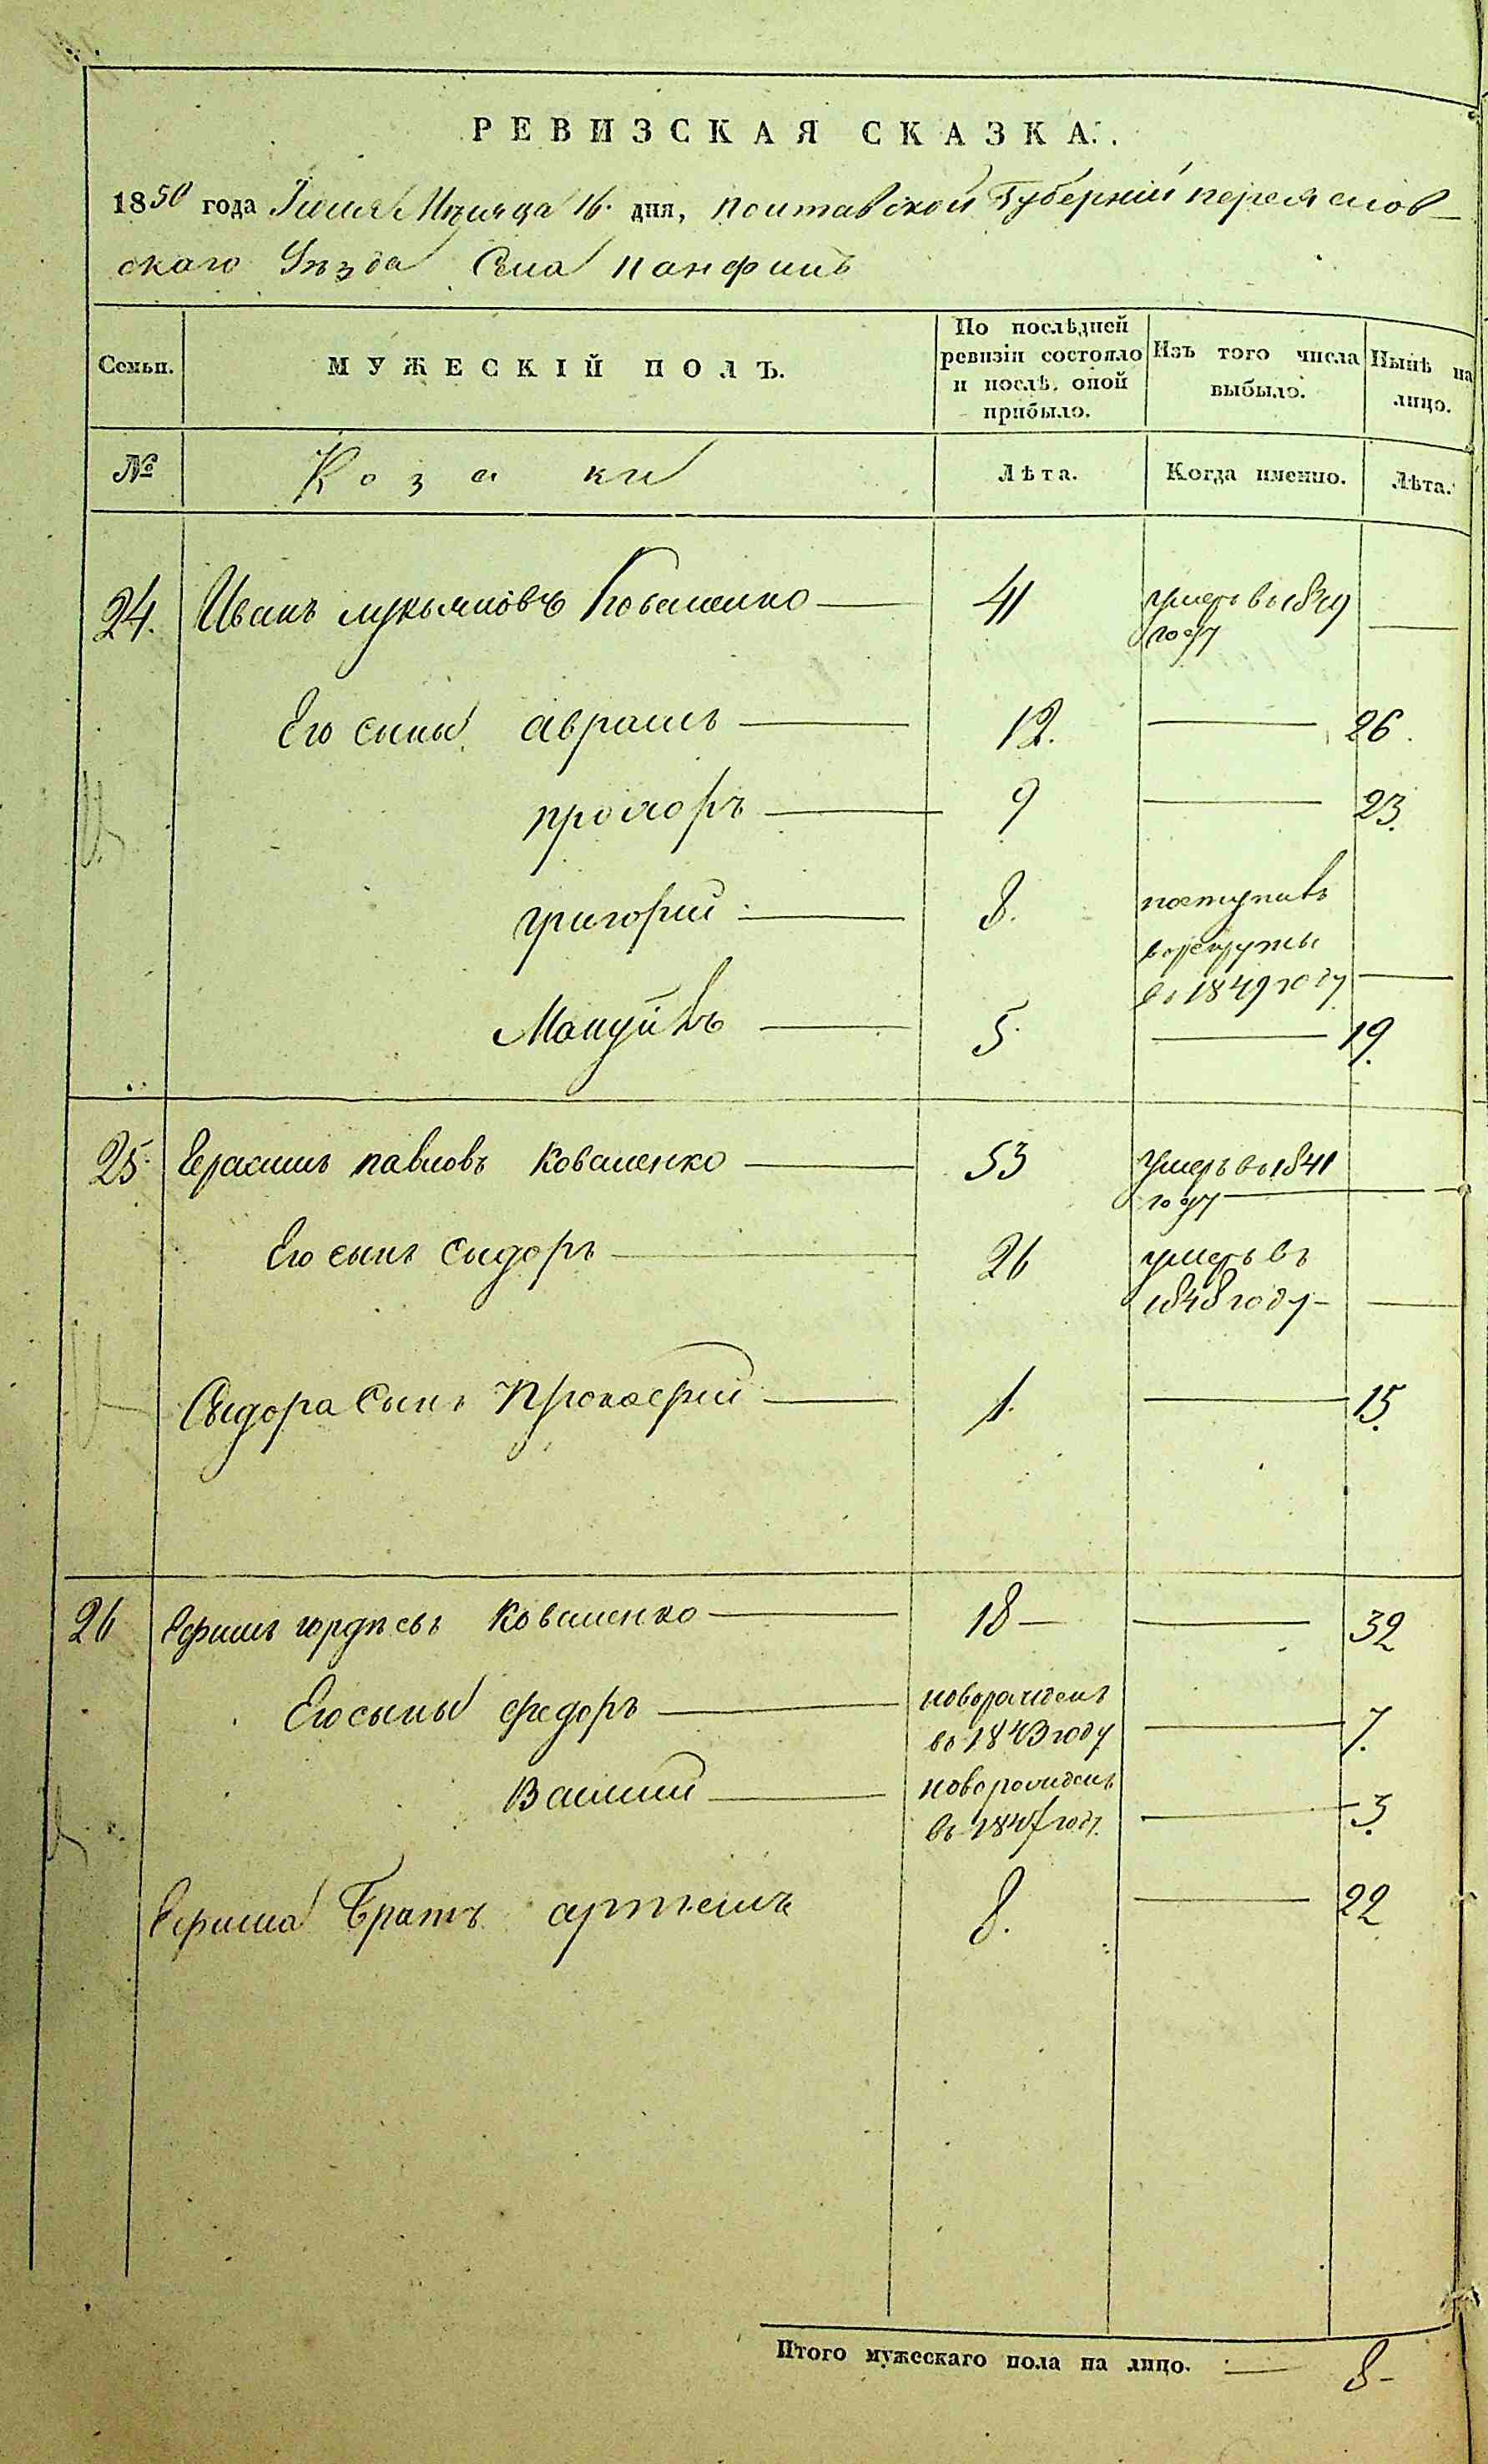 РЕВИЗСКАЯ СКАЗКА.
1850 года Іюля Мѣсяца 16. дня, Полтавской Губерніи переяслов-
скаго Уѣзда Села Панфилъ
Семьи.
МУЖЕСКІЙ ПОЛЪ.
По послѣдней
ревизіи состояло
и послѣ оной
прибыло.
Изъ того числа
выбыло.
Нынѣ на
лицо.
№
Козаки
Лѣта.
Когда именно.
Лѣта.
24. Иванъ лукьяновъ Коваленко — 41 умеръ въ 1849
году —
Его сыны аврамъ — 12. — 26.
прохоръ — 9 — 23.
григорій — 8. поступивъ
в рекруты
въ 1849 году —
Мануйлъ — 5. — 19.
25. Герасимъ павловъ Коваленко — 53 умеръ въ 1841
году —
Его сынъ Сыдоръ — 26 умеръ въ
1848 году —
Сыдора Сынъ Прокофій — 1. — 15.
26 Ефимъ гордѣевъ Коваленко — 18 — — 32
Его сыны федоръ — новорожденъ
въ 1843 году — 7.
Василий — новорожденъ
въ 1847 году — 3.
Ефима Братъ артемъ 8. — 22
Итого мужескаго пола на лицо. — 8 -